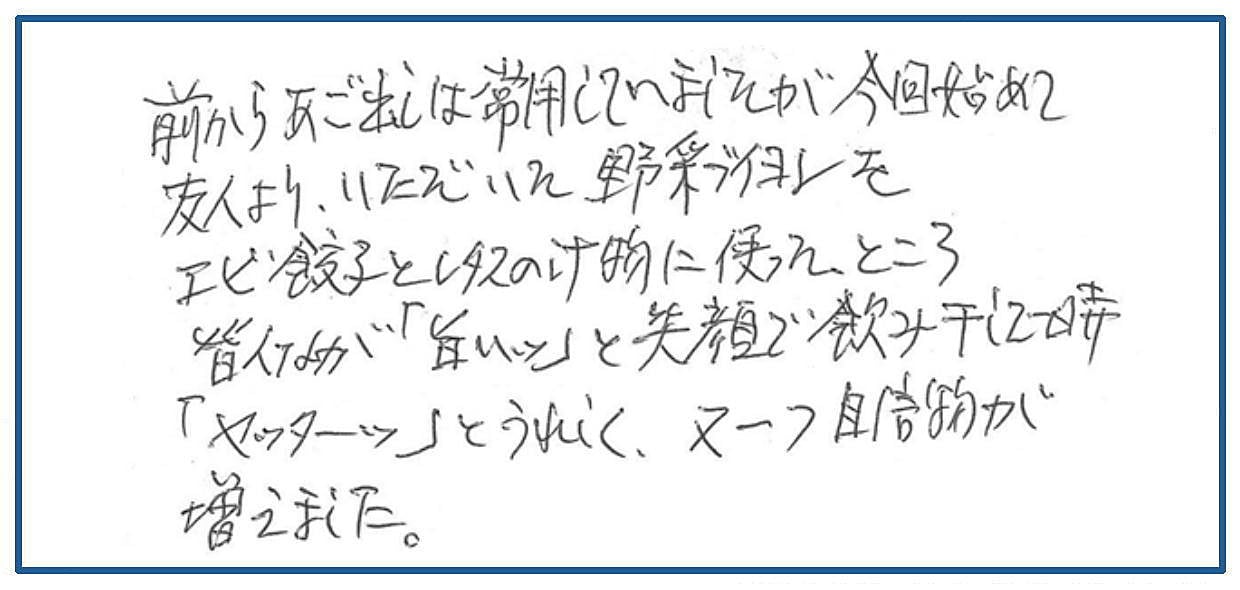 前からあご出しは常用していましたが今回始めて
友人より、いただいた野彩ブイヨンを
エビ餃子とレタスの汁物に使った、ところ
皆んなが「旨いッ」と笑顔で飲み干して時
「ヤッターッ」とうれしく、又一つ自信物が
増えました。